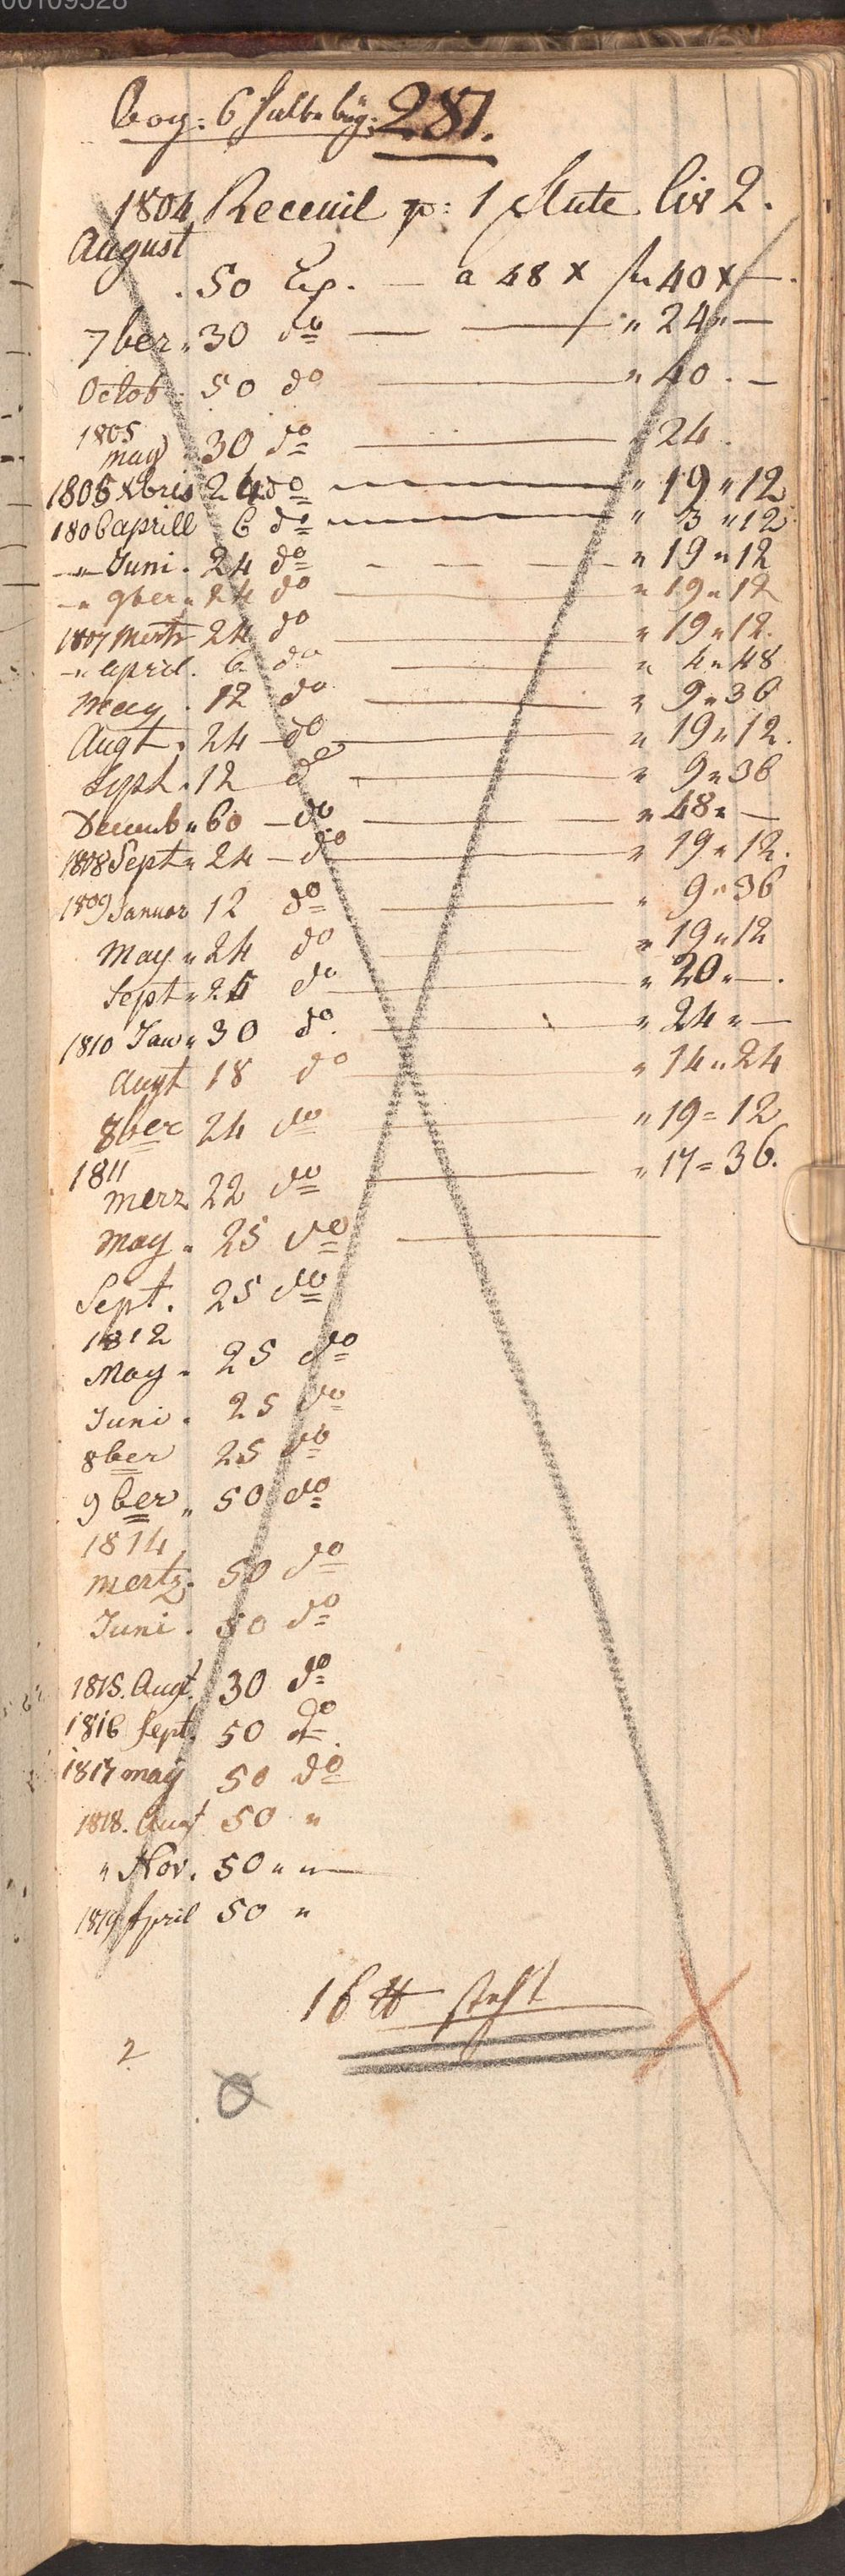 00109528
Bog: 6 halbe bög: 281.
1804 Receuil p: 1 Flute Liv 2.
August
50 Exp. — a 48 x fl 40 x —.
7ber " 30 do — — " 24 " —
Octob. 50 do — " 40 . —
1805
may 30 do — " 24.
1805 Xbris 24 do — " 19 " 12
1806 aprill 6 do — " 3 " 12
— " Juni . 24 do — — — " 19 " 12
— " 9ber " 24 do — " 19 " 12
1807 Mertz 24 do — " 19 " 12.
— " april . 6 do — " 4 " 48
May . 12 do — " 9 " 36
Augt . 24 — do — " 19 " 12.
Sept . 12 do — " 9 " 36
Decemb " 60 — do — — " 48 " —
1808 Sept " 24 — do — " 19 " 12.
1809 Januar 12 do — " 9 " 36
May " 24 do — " 19 " 12
Sept " 25 do — " 20 " —.
1810 Jan " 30 do. — " 24 " —
Augt 18 do — " 14 " 24
8ber 24 do — " 19 = 12
1811
merz 22 do — " 17 = 36.
May " 25 do —
Sept. 25 do
1812
May " 25 do
Juni . 25 do
8ber 25 do
9ber " 50 do
1814
mertz. 50 do
Juni . 50 do
1815. Augt. 30 do
1816 Sept. 50 do.
1817 may 50 do
1818. Augt 50 "
" Nov. 50 " " —
1819 April 50 "
16 ℔ steht
2
0